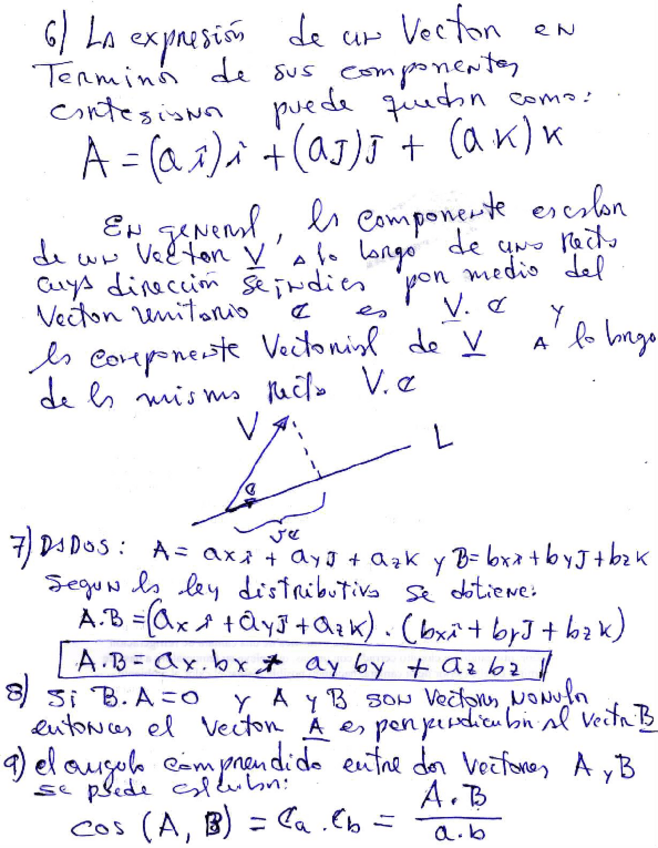 6) La expresión de un Vector en
Termino de sus componentes
cartesiana puede quedar como:
A = (a î) i + (a J) J + (a.K) K
En general, la componente escalar
de un Vector V a lo largo de una Recta
cuya dirección se indica por medio del
Vector unitario e es V. e y
la componente Vectorial de V A lo largo
de la misma Recta V.e
V
L
e
Ve
7) Dados: A = axi + ayJ + azK y B = bxi + byJ + bzK
Segun la ley distributiva se obtiene:
A.B = (ax î + ayJ + azK) . (bxi + byJ + bzK)
A.B = ax.bx + ay by + az bz //
8) Si B.A = 0 y A y B son Vectores no nulos
entonces el Vector A es perpendicular al Vector B
9) el angulo comprendido entre dos Vectores A y B
se puede calcular:
cos (A, B) = ea . eb = A.B / a.b